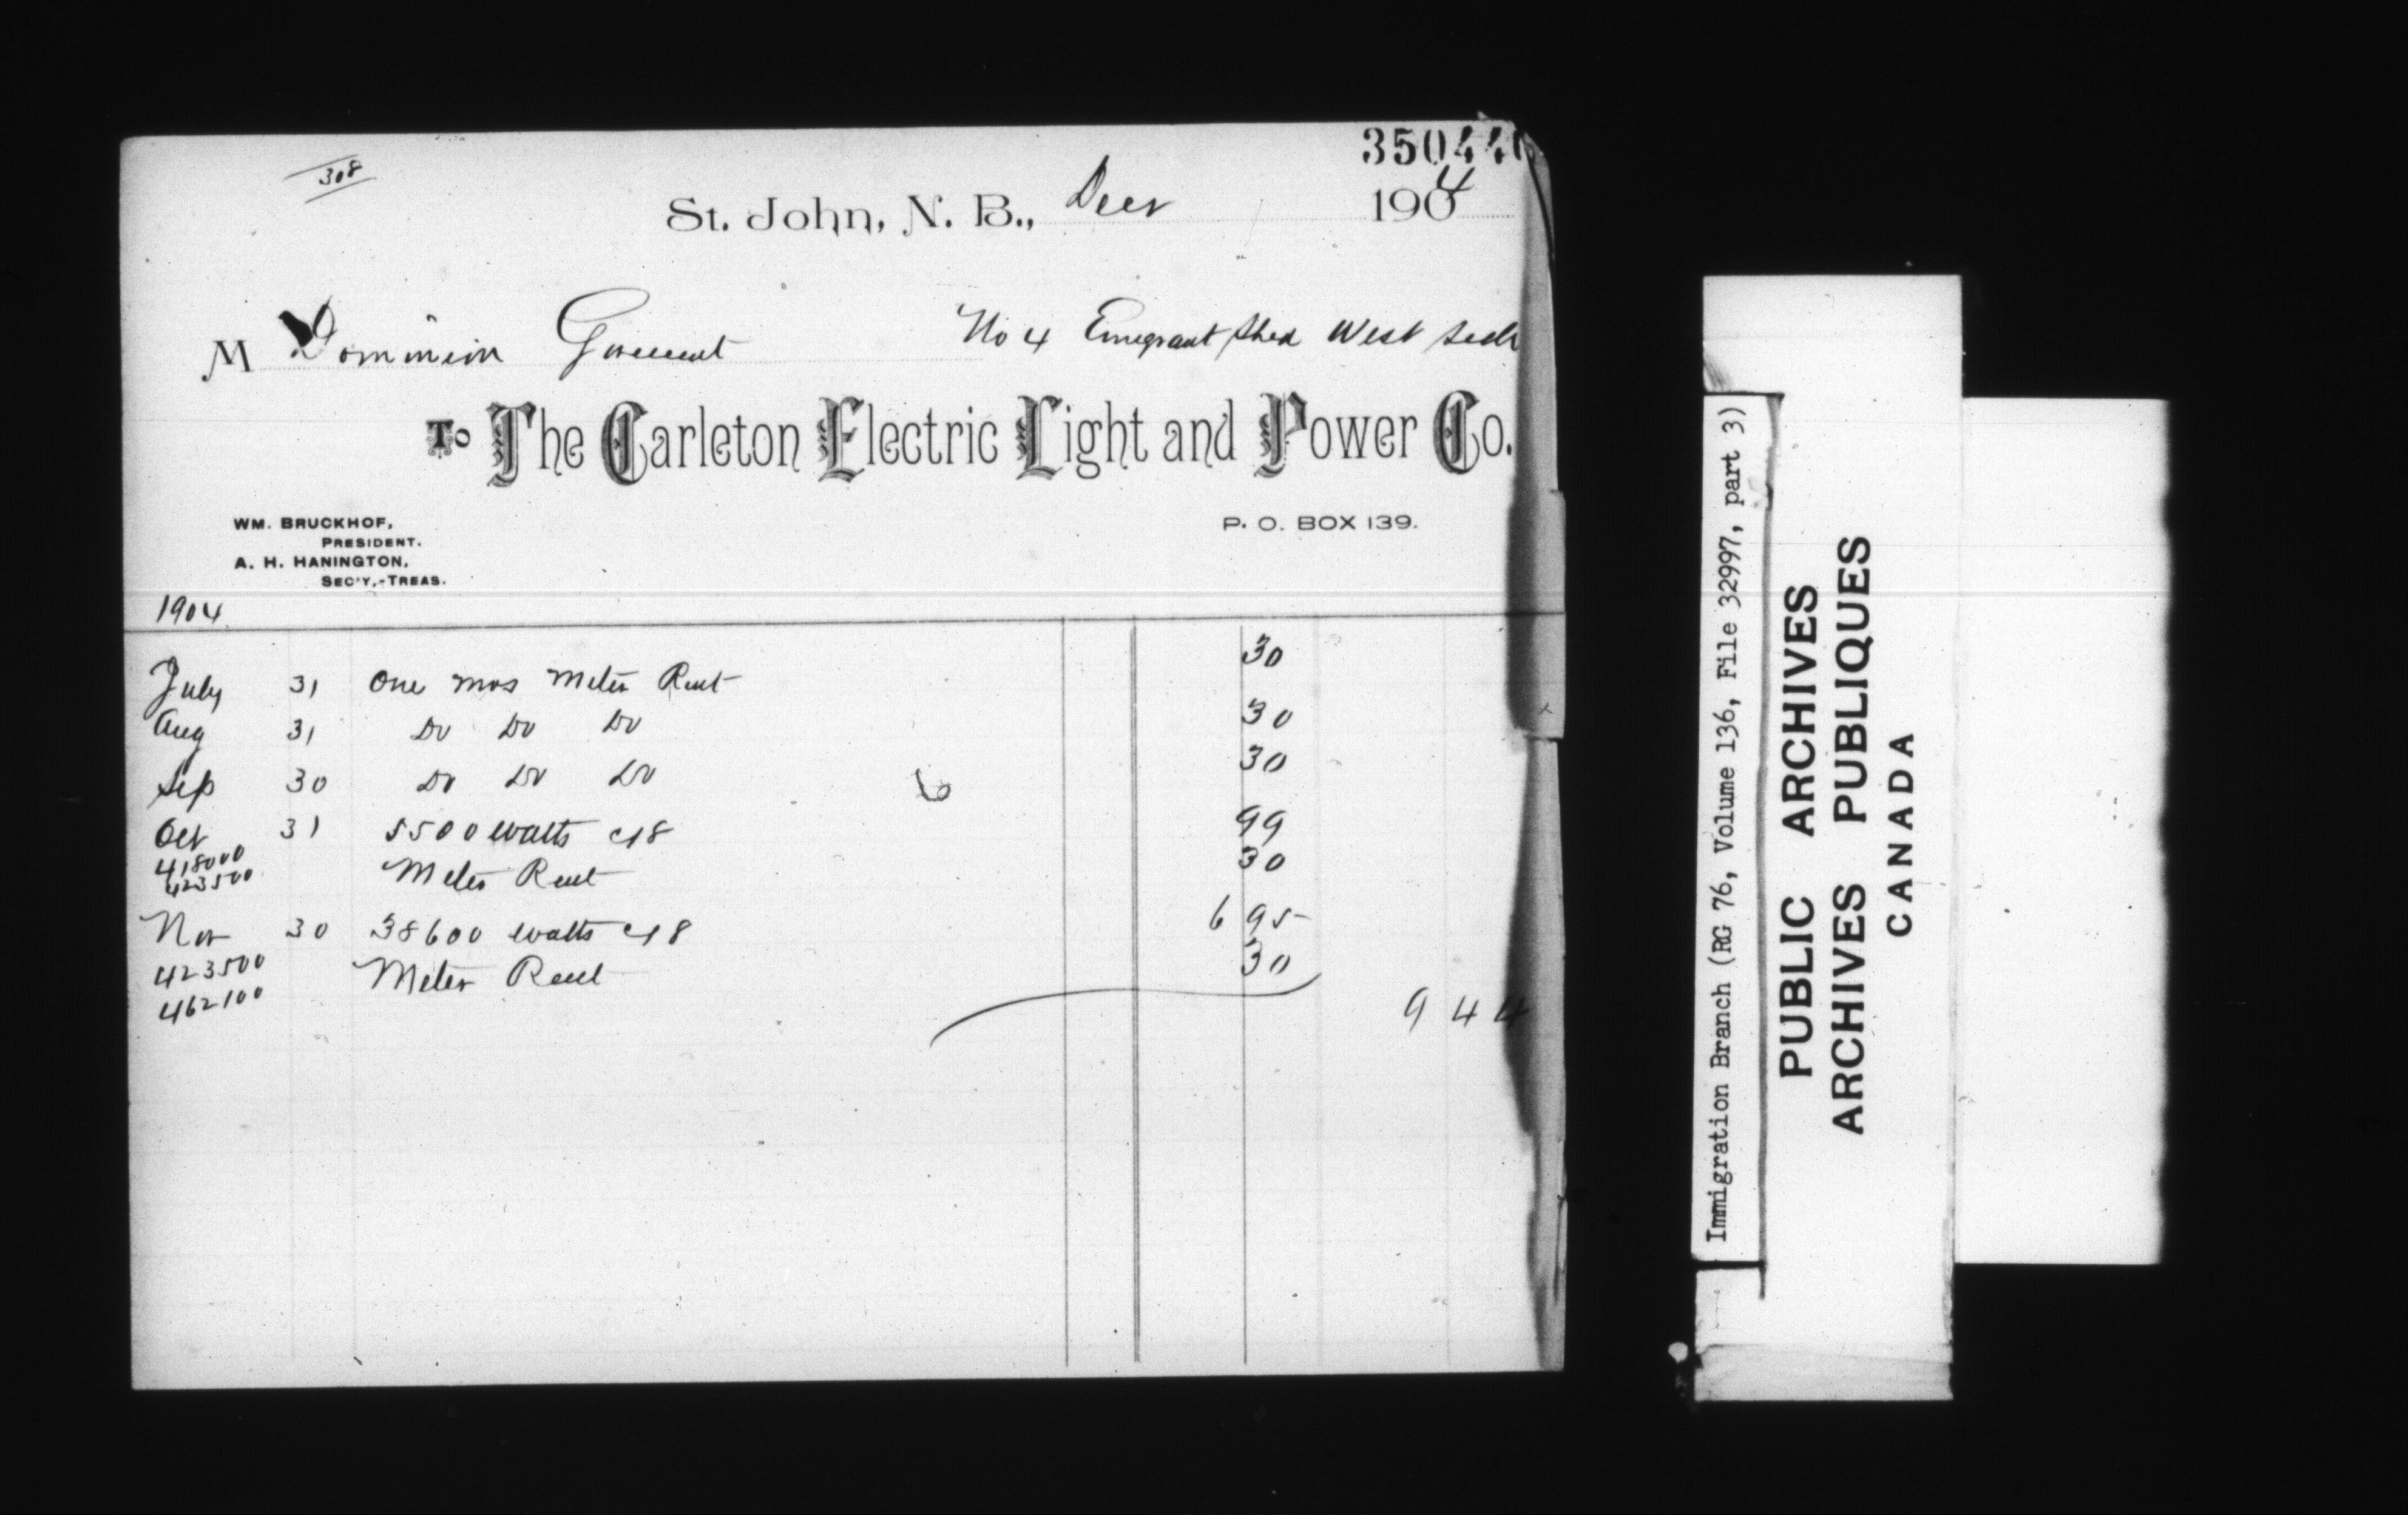 350440
308
St. John, N. B., Decr 1904
M Dominion Government No 4 Emigrant Shed West Side
To The Carleton Electric Light and Power Co.
WM. BRUCKHOF,
PRESIDENT.
P. O. BOX 139.
A. H. HANINGTON,
SEC'Y,-TREAS.
1904
July 31 One mos Meter Rent 30
Aug 31 Do Do Do 30
Sep 30 Do Do Do 30
Oct 31 5500 watts c18 99
418000
423500 Meter Rent 30
Nov 30 38600 watts c18 6 95
423500 Meter Rent 30
462100
9 44
Immigration Branch (RG 76, Volume 136, File 32997, part 3)
PUBLIC ARCHIVES
ARCHIVES PUBLIQUES
CANADA